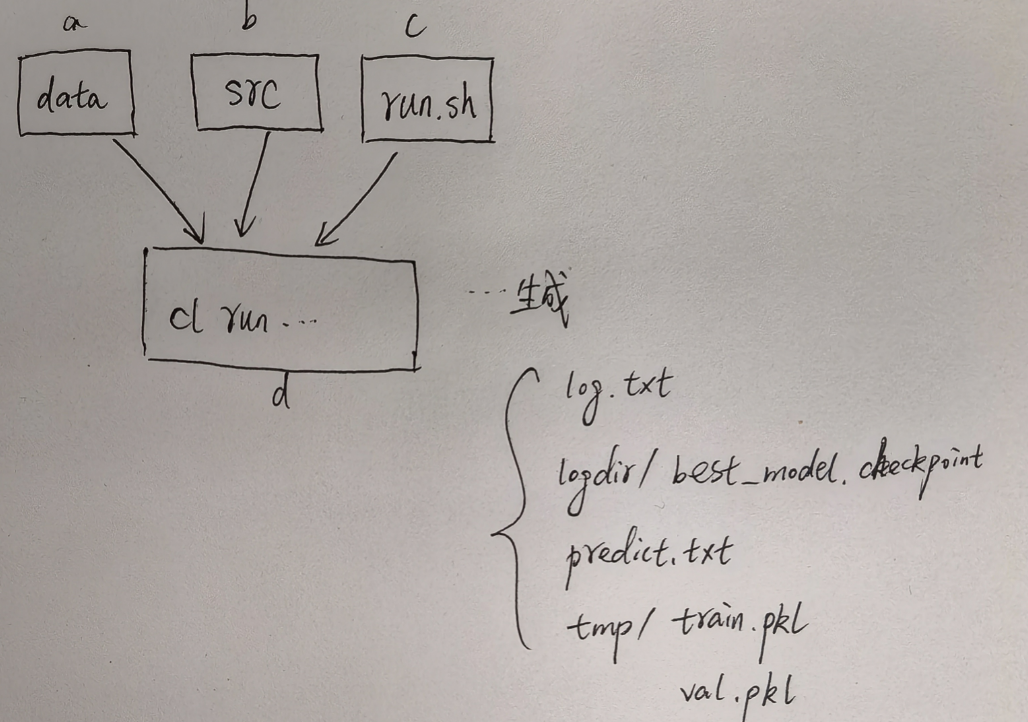 a b c
data src run.sh
cl run ...
d
... 生成
log.txt
logdir/ best_model.checkpoint
predict.txt
tmp/ train.pkl
val.pkl